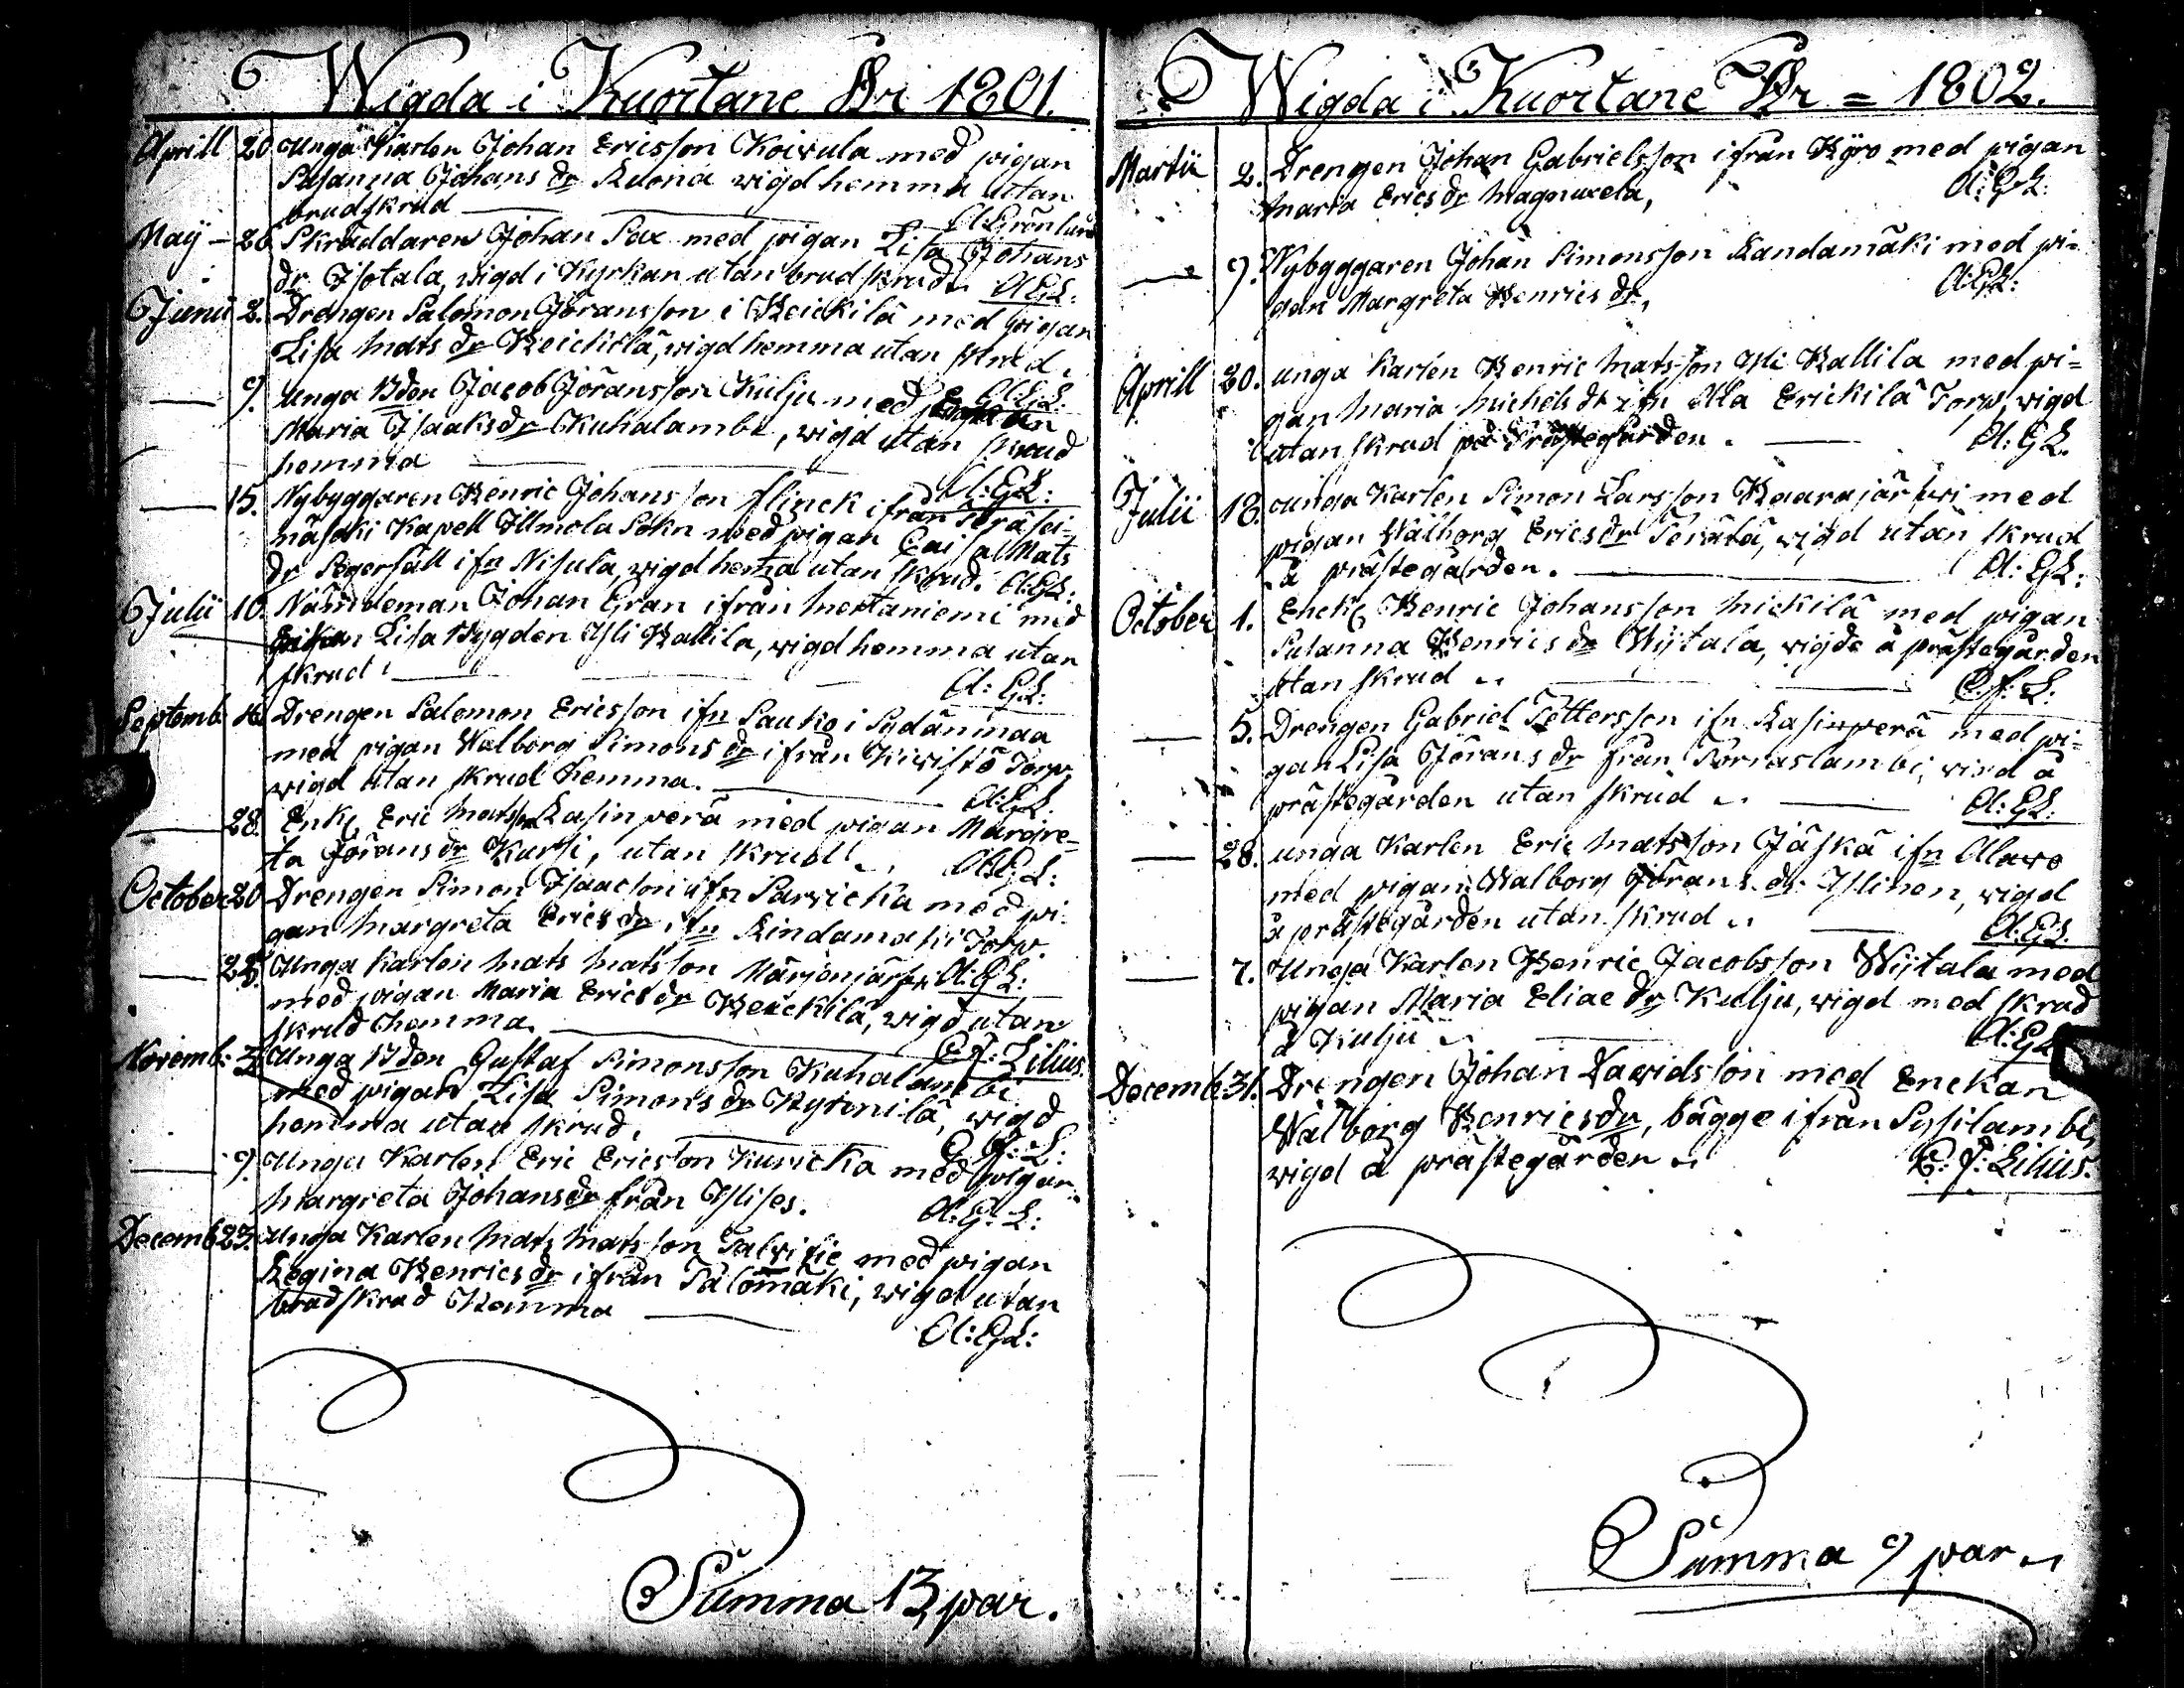 Wigda i Kuortane År 1801.
Aprill 20 Unga Karlen Johan Ericsson Koivula med pigan
Susanna Johans dr Ruona wigd hemma utan
brudskrud A: Grönlund
Maij - 26 Skräddaren Johan Sax med pigan Lisa Johans
dr Isotala, wigd i Kyrkan utan brudskrud. A:GL:
Junii 2. Drengen Salomon Jöransson i Heickilä med pigan
Lisa Mats dr Heickilä, wigd hemma utan skrud.
A:GL:
9. unga Bden Jacob Jöransson Kulju med
Maria Isaaks dr Kuhalambi, wigd utan skrud
hemma A:GL:
15. Nybyggaren Henric Johansson Flinck ifrån Peräsei-
näjoki Kapell Illmola Sokn med pigan Caisa Mats
dr Segersäll ifn Nisula, wigd hema utan skrud. A:GL:
Julii 10. Nämdeman Johan Gran ifrån Mertaniemi med
Lisa Bygden Yli Kallila, wigd hemma utan
skrud A: GL:
Septemb: Drengen Salomon Ericsson ifn Sauko i Sydänmaa
med pigan Walborg Simons dr ifrån Kivistö Torp
wigd utan skrud hemma. A:GL.
28. Enkl Eric Matss Kasinperä med pigan Margre-
ta Jörans dr Kursi, utan skrud A:G:L:
October 20 Drengen Simon Isacson ifn Sarvicka med pi-
gan Margreta Erics dr ifn Rindamäki Torp.
28. Unga Karlen Mats Matsson Märjenjärfvi A:GL:
med pigan Maria Erics dr Heickilä, wigd utan
skrud hemma. C.F: Lilius.
Novemb: 3. Unga Bden Gustaf Simonsson Kuhalambi
med pigan Lisa Simons dr Kyrönilä, wigd
hemma utan skrud. C.F:L:
9. Unga Karlen Eric Ericsson Kuricka med pigan
Margreta Johans dr från Ylises. A:G:L:
Decemb 27. unga Karlen Mats Matsson Talvitie med pigan
Regina Henrics dr ifrån Salomäki, wigd utan
brudskrud Hemma
A:GL:
Summa 13 par.
Wigda i Kuortane År = 1802.
Martii 2. Drengen Johan Gabrielsson ifrån Kyro med pigan
Maria Erics dr Magnuxela, A:GL:
9. Nybyggaren Johan Simonsson Kandamäki med pi-
gan Margreta Henrics dr, A:GL:
Aprill 20. unga Karlen Henric Matsson Yli Kallila med pi-
gan Maria Michels dr ifn Ala Erickilä Torp, wigd
utan skrud på Prästegården. A: GL.
Julii 18. unga Karlen Simon Larsson Kaarajärfwi med
pigan Walborg Erics dr Perälä, wigd utan skrud
å prästegården. A: GL:
October 1. Enckl Henric Johansson Mickilä med pigan
Susanna Henrics dr Wijtala, wigde å prästegården
utan skrud C.F: L:
5. Drengen Gabriel Pettersson ifn Kasinperä med pi-
gan Lisa Jörans dr från Porraslambi, wigd å
prästegården utan skrud A: GL:
28. unga Karlen Eric Matsson Jäskä ifn Alavo
med pigan Walborg Jörans dr Ylinen, wigd
å prästegården utan skrud A:GL.
7. Unga Karlen Henric Jacobsson Wijtala med
pigan Maria Eliae dr Kulju, wigd med skrud
å Kulju A:GL
Decemb 31. Drengen Johan Davidsson med Enckan
Walborg Henrics dr, bägge ifrån Sysilambi,
wigd å prästegården C: F: Lilius.
Summa 9 par